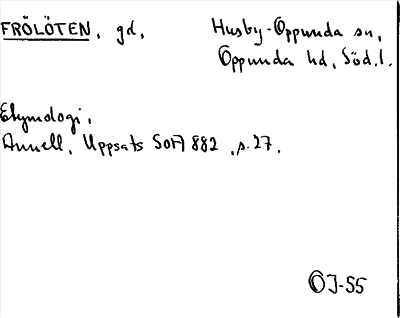 FRÖLÖTEN, gd, Husby-Oppunda sn,
Oppunda hd, Söd. l.
Etymologi,
Annell, Uppsats SOFI 882, s. 27.
OJ-55